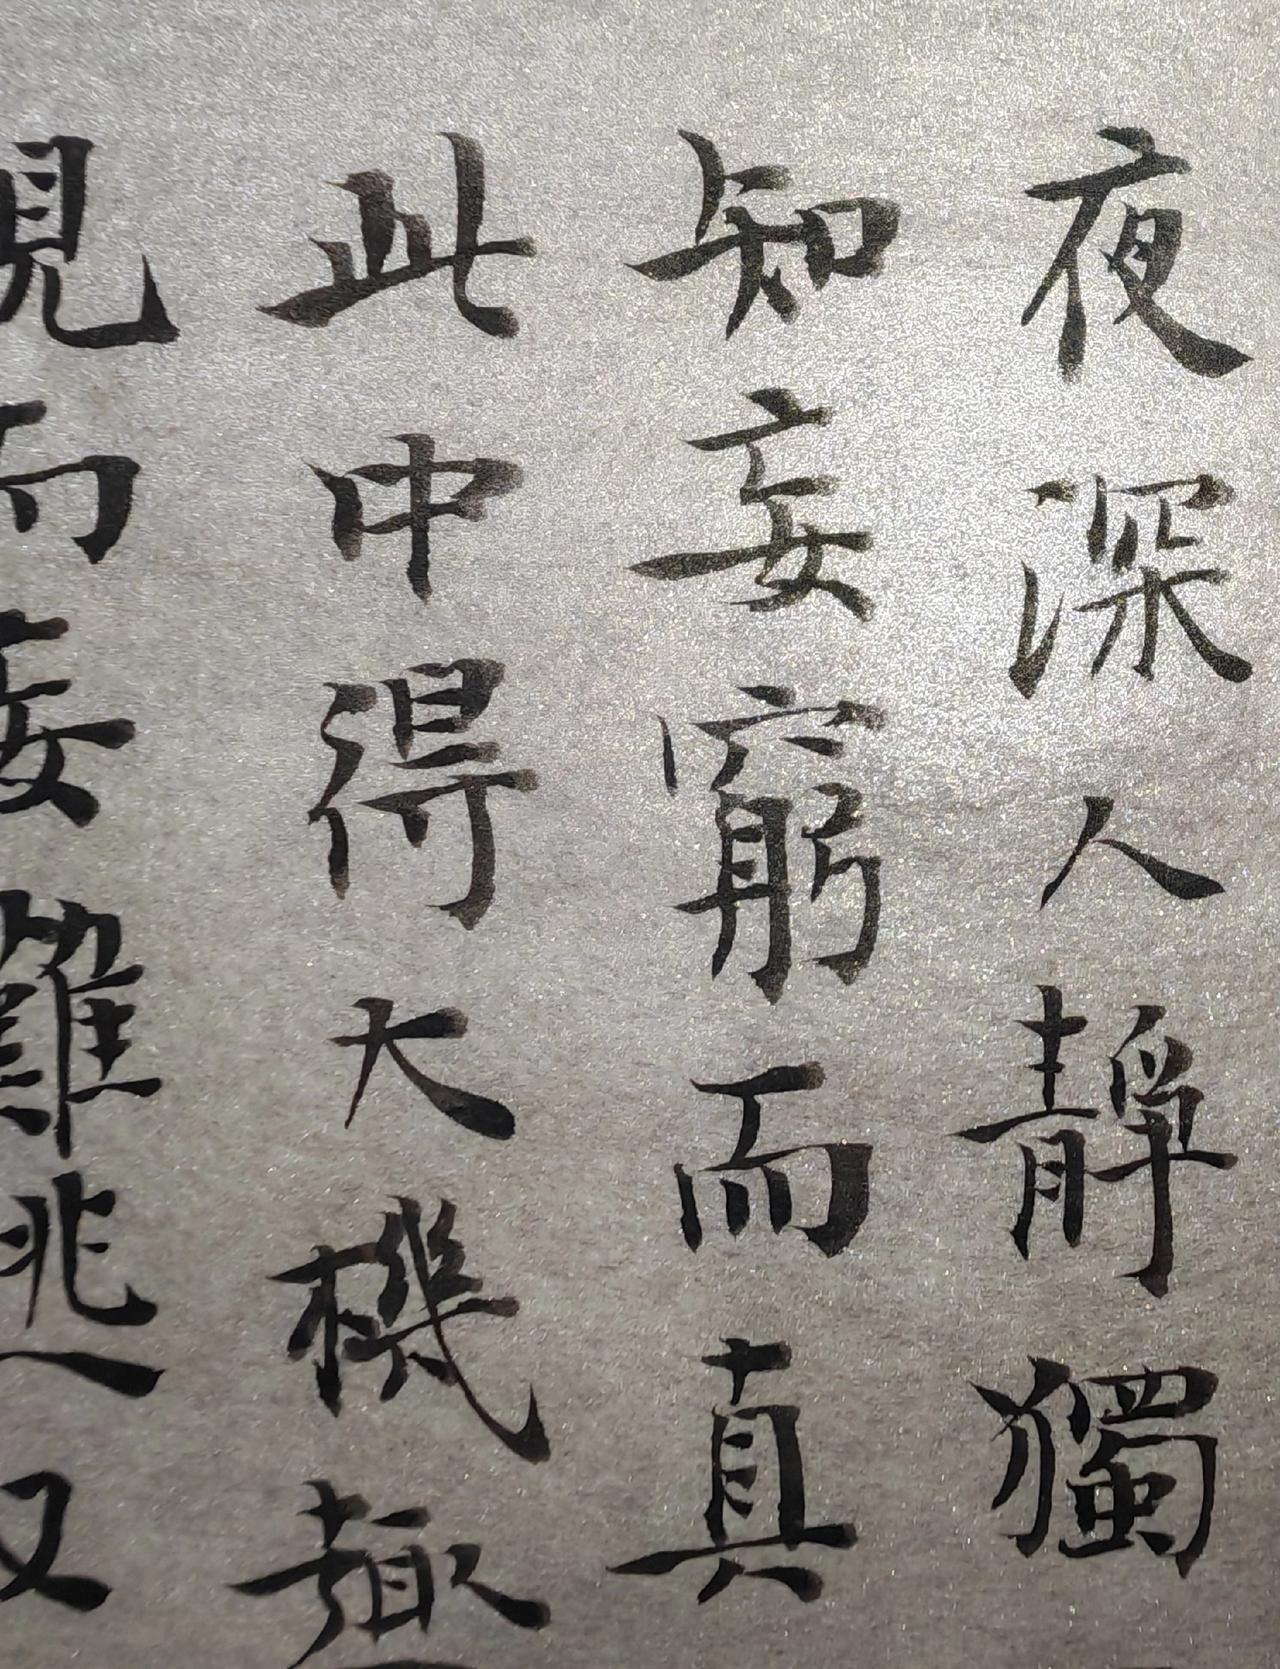 夜深人靜獨
知妄窮而真
此中得大機趣
現而妄難逃又